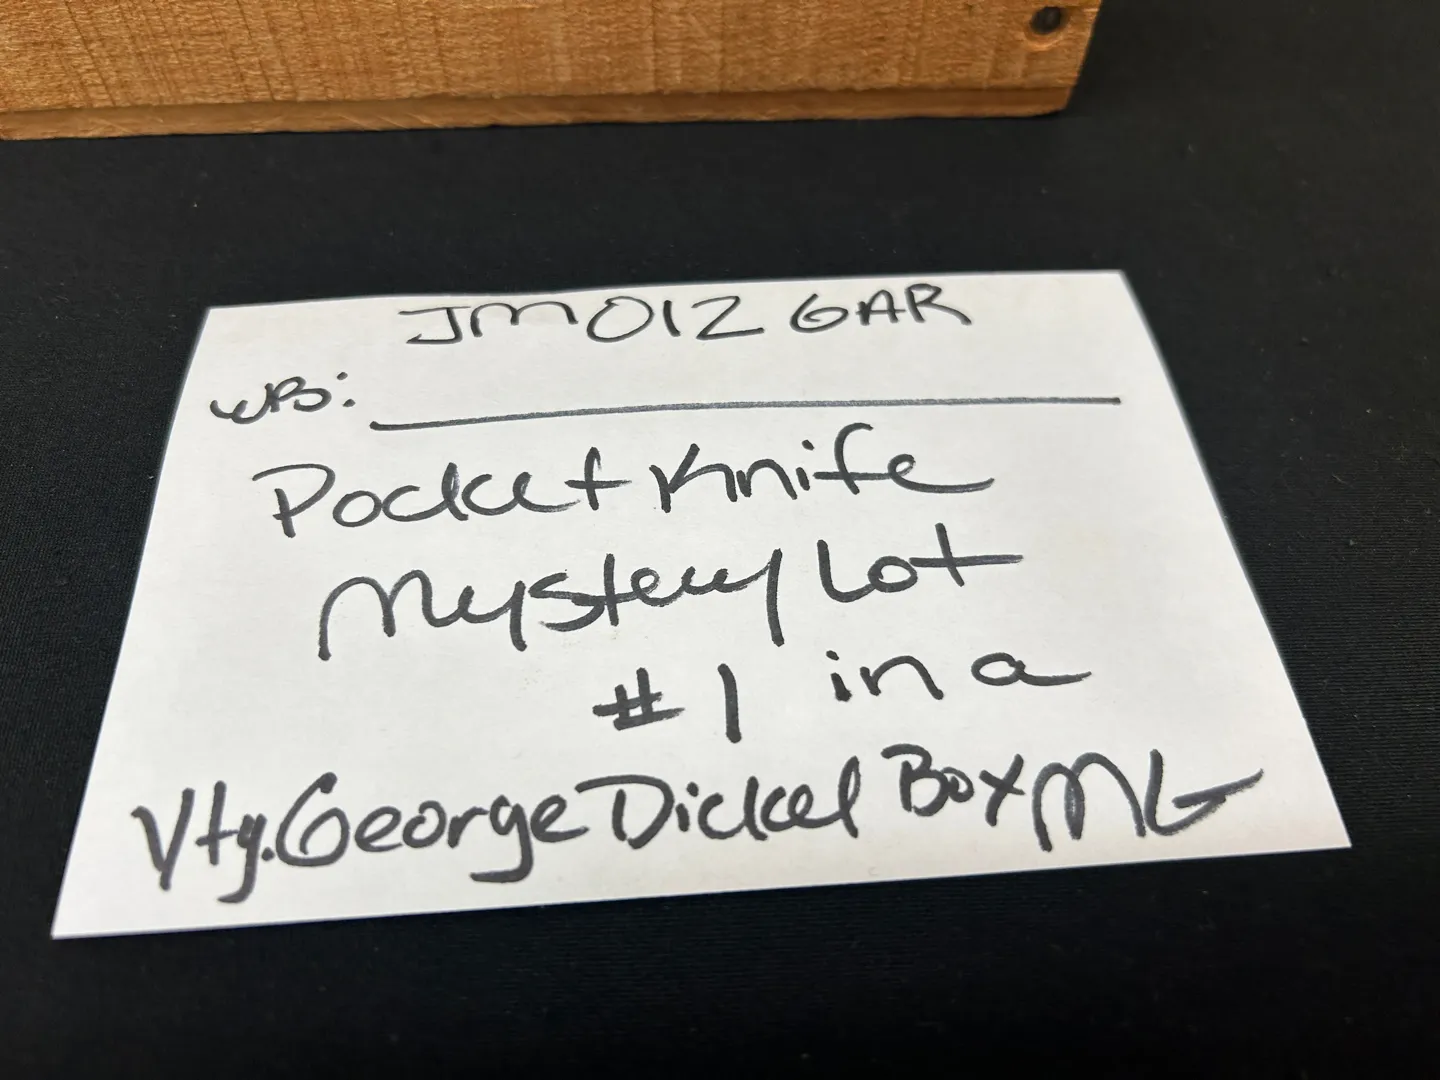 JM012 GAR
WB: ____________
Pocket Knife
Mystery Lot
#1 in a
Vtg. George Dickel Box MG